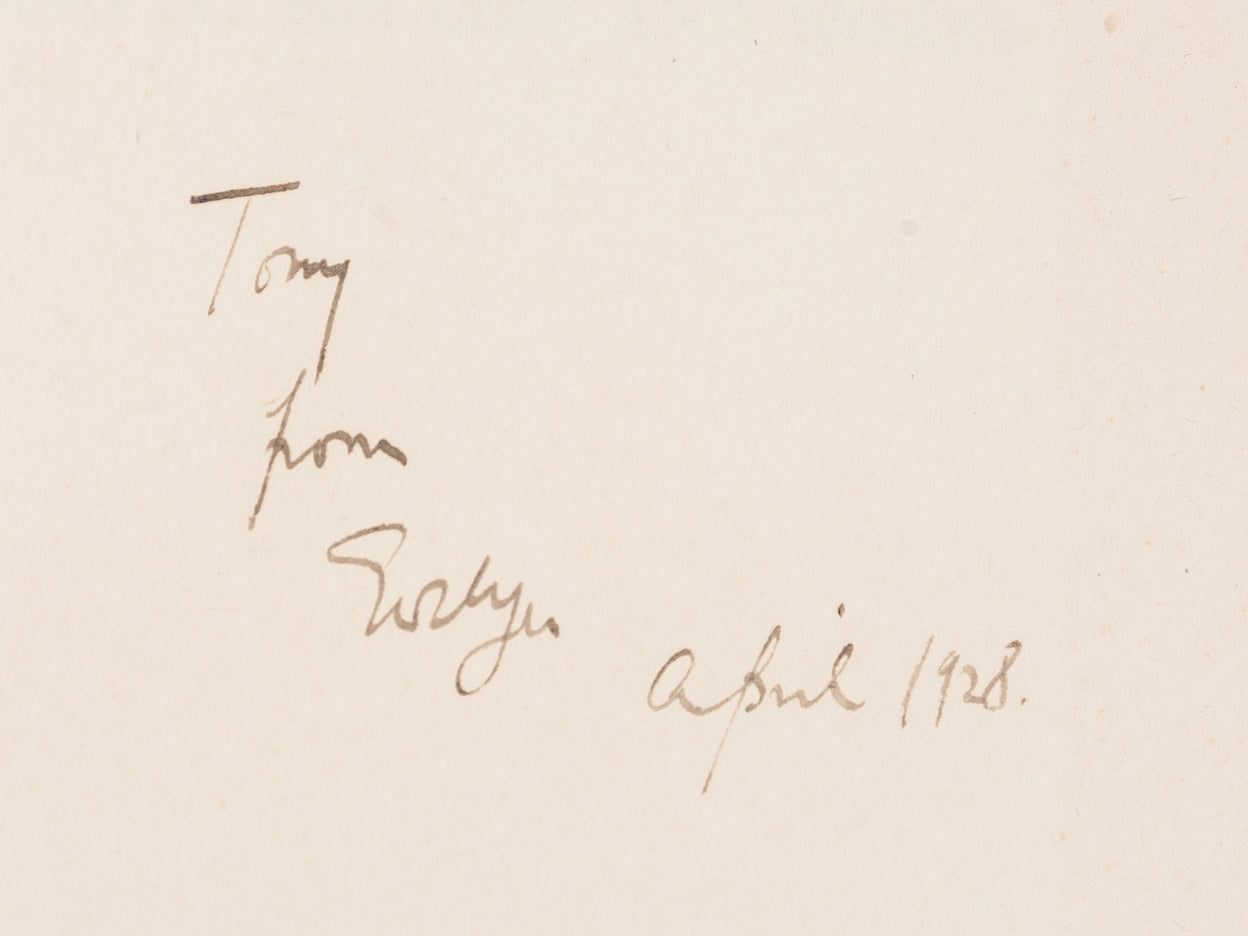 Tony
from
Evelyn
April 1928.